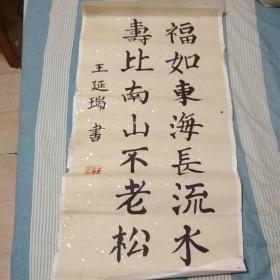 福如東海長流水
壽比南山不老松
王延瑞書